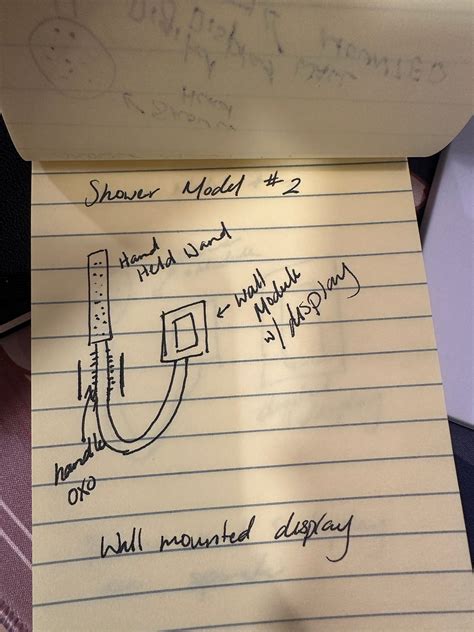 Shower Model #2
Hand
Held Wand
← Wall
Module
w/ display
handle
OXO
Wall mounted display